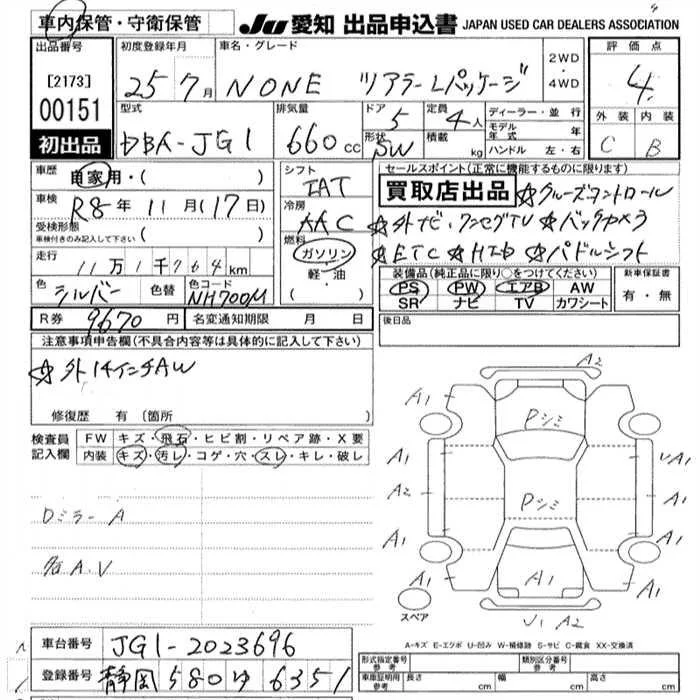 車内保管・守衛保管
JU 愛知 出品申込書 JAPAN USED CAR DEALERS ASSOCIATION
出品番号
[2173]
00151
初出品
初度登録年月
25 7月
車名・グレード
N ONE ツアラーLパッケージ
2WD
・
4WD
評価点
4
外装 内装
C B
型式
DBA-JG1
排気量
660 cc
ドア
5
形状
SW
定員
4人
積載
kg
ディーラー・並行
モデル年式 年
ハンドル 左・右
車歴
自家用・( )
車検
R8年11月(17日)
受検形態
車検付きのみ記入して下さい ( )
走行
11万1千764km
色
シルバー
色替
色コード
NH700M
シフト
IAT
冷房
AAC
燃料
ガソリン
・
軽・油
( )
セールスポイント(正常に機能するものに限ります)
買取店出品 ☆クルーズコントロール
☆外ナビ、ワンセグTV ☆バックカメラ
☆ETC ☆HID ☆パドルシフト
装備品(純正品に限り○をつけてください)
PS PW エアB AW
SR ナビ TV カワシート
新車保証書
有・無
R券 9670円
名変通知期限 月 日
後日品
注意事項申告欄(不具合内容等は具体的に記入して下さい)
☆外14インチAW
修復歴 有(箇所 )
検査員記入欄
FW キズ・飛石・ヒビ割・リペア跡・X要
内装 キズ・汚レ・コゲ・穴・スレ・キレ・破レ
Dミラー A
各A.V
A2
A1 A1
Pシミ
A1 UA1
A2 A1
Pシミ
A1 A1
A1 A1 A1
U1 A2
スペア
A-キズ E-エクボ U-凹み W-補修跡 S-サビ C-腐食 XX-交換済
車台番号 JG1-2023696
登録番号 静岡 580 ゆ 6351
形式指定番号 参考
類別区分番号 参考
車庫証明用 参考 長さ cm 幅 cm 高さ cm